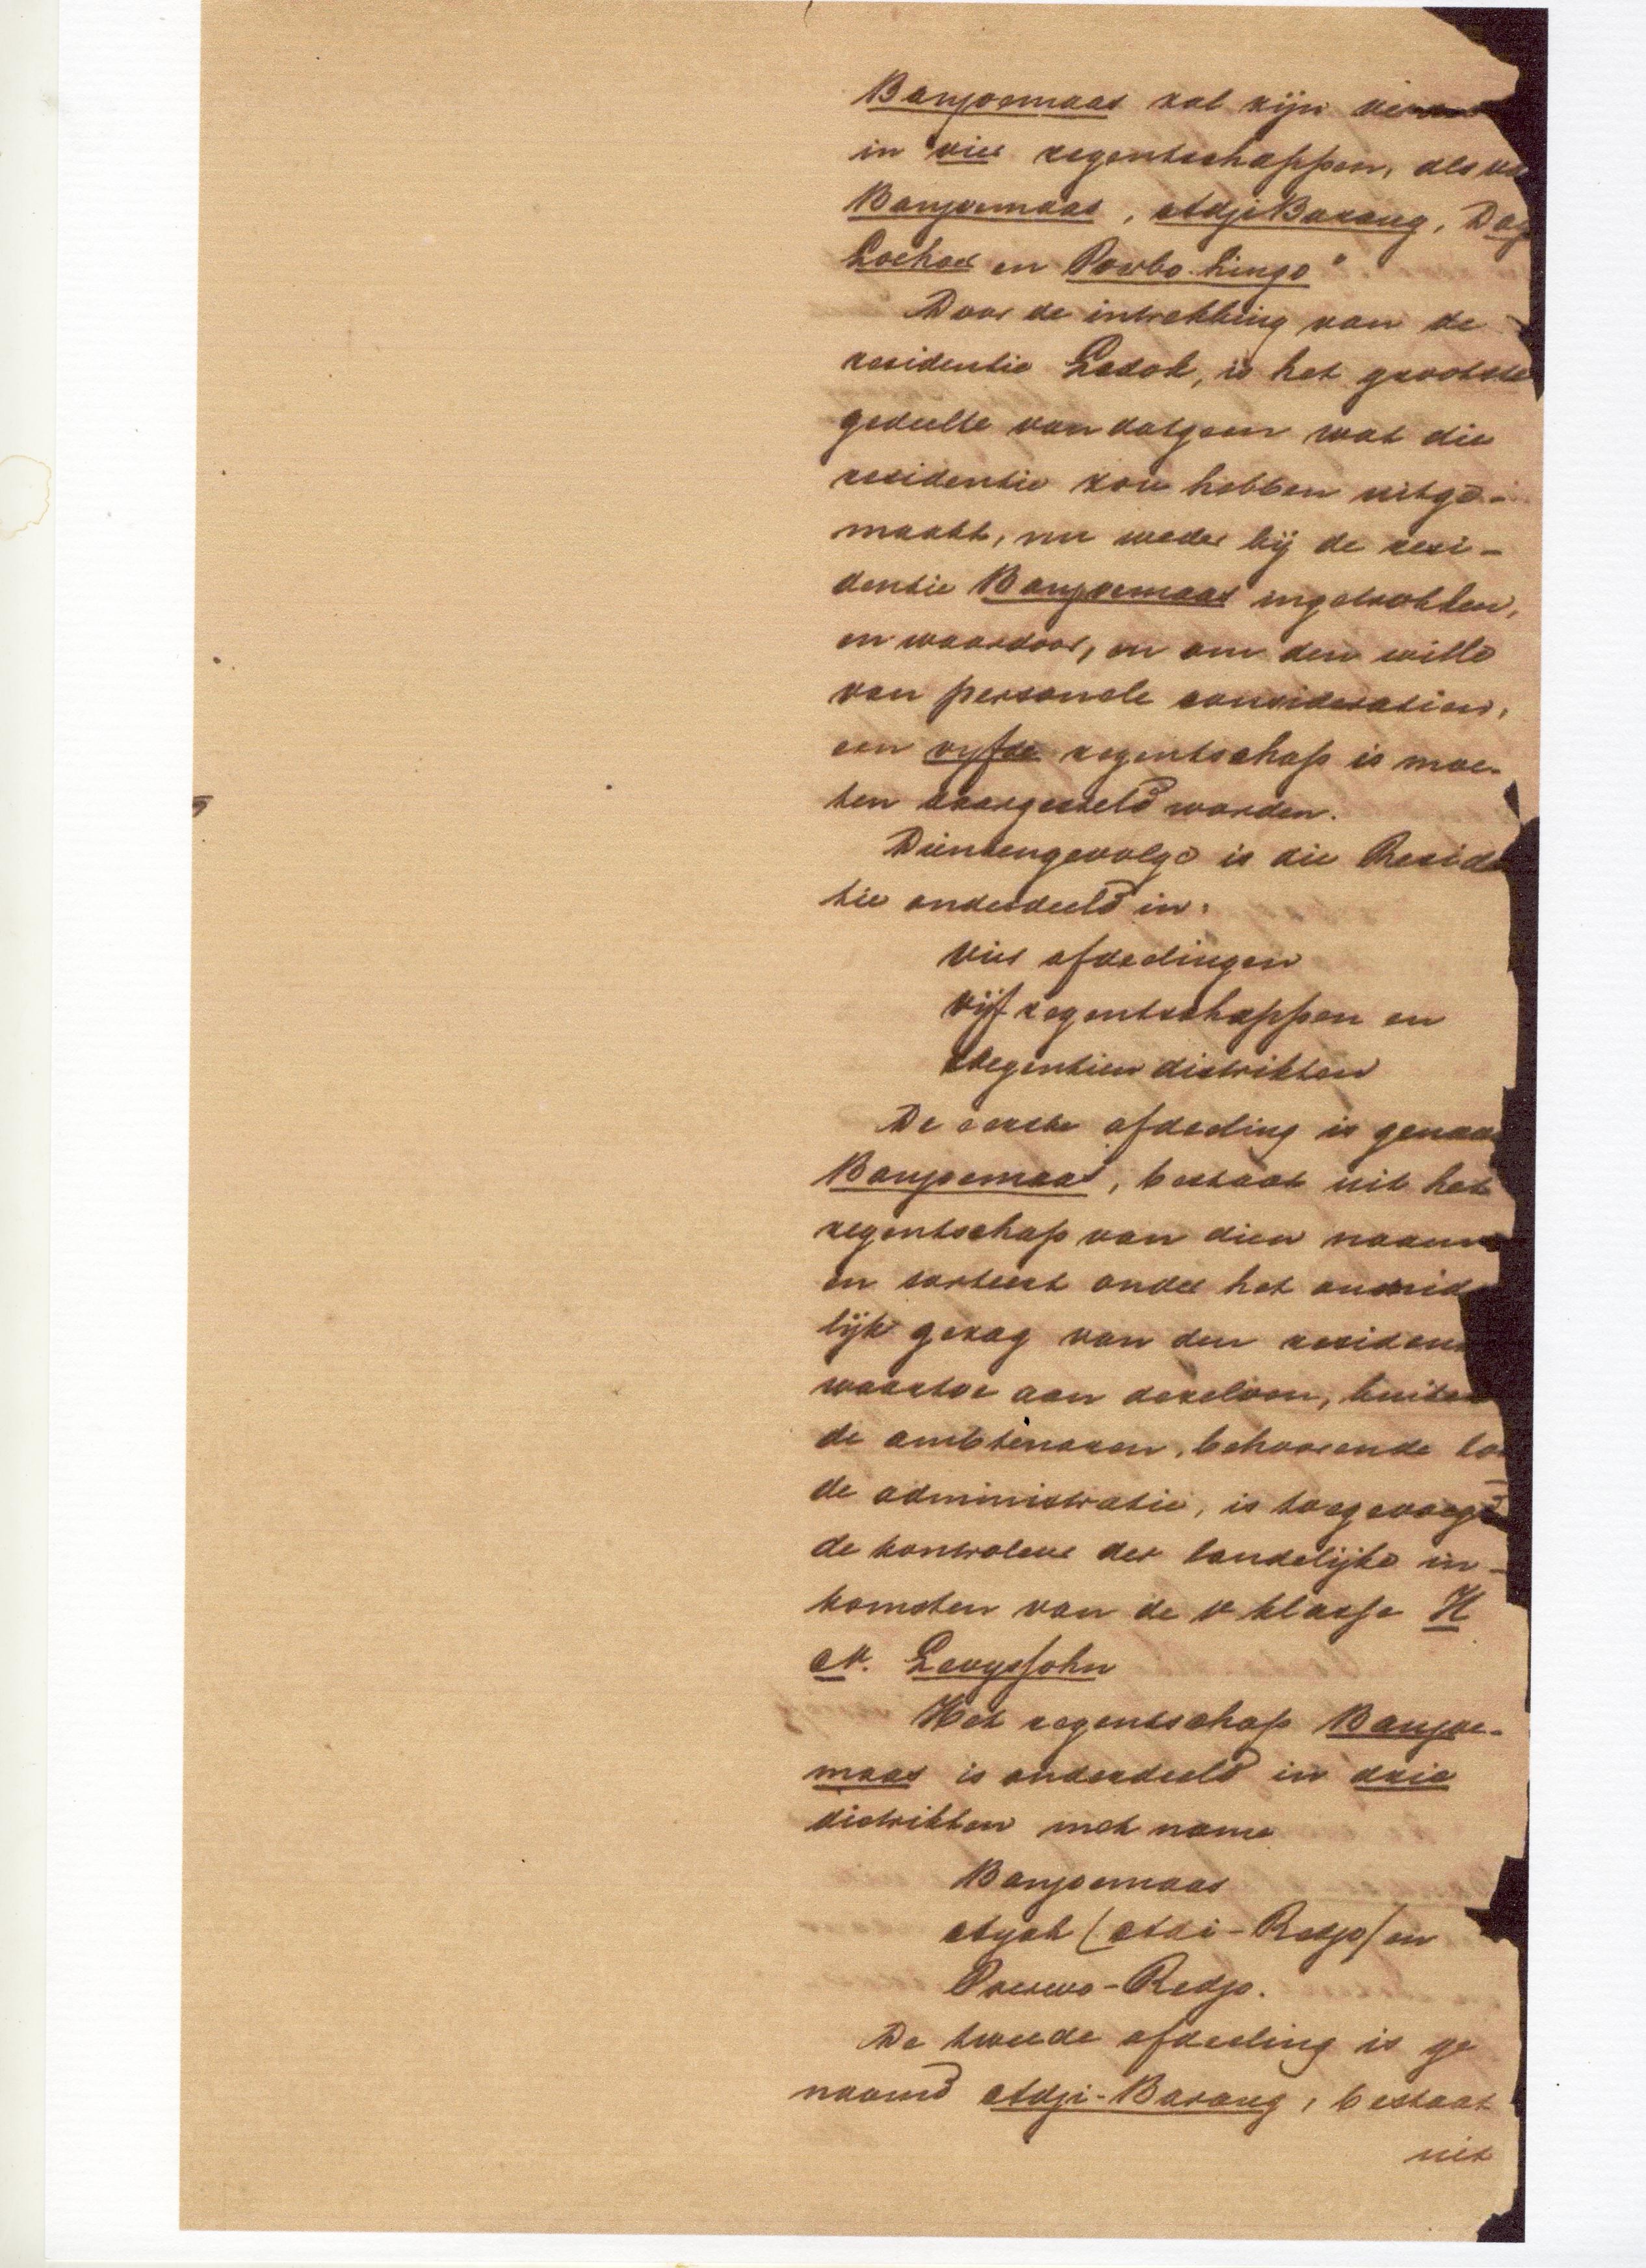 Banjoemaas zal zijn
in vier regentschappen, als
Banjoemaas, AdjiBarang, Daÿ
Loehoer en Poerbo-Lingo"
Door de intrekking van de
residentie Ledok, is het grootste
gedeelte van datgeen wat die
residentie zou hebben uitge-
maakt, nu weder bij de resi-
dentie Banjoemaas ingetrokken,
en waardoor, en om den wille
van personele consideratien,
een vyfde regentschap is moe-
ten daargesteld worden.
Diensengevolge is die Resid
tie onderdeeld in:
vier afdeelingen
vijf regentschappen en
Negentien distrikten
De eerste afdeeling is genaa
Banjoemaas, bestaat uit het
regentschap van dien naam
en sorteert onder het onmid
lijk gezag van den resident
waartoe aan dezelven, buiten
de ambtenaren, behoorende to
de administratie, is toegevoegd
de kontroleur der landelijke in-
komsten van de V klasse H
N. Levyssohn
Het regentschap Banjoe-
maas is onderdeeld in drie
distrikten met name
Banjoemaas
Ayah (Adi-Redjo) en
Poerwo-Redjo.
De tweede afdeeling is ge
naamd Adji-Barang, bestaat
uit